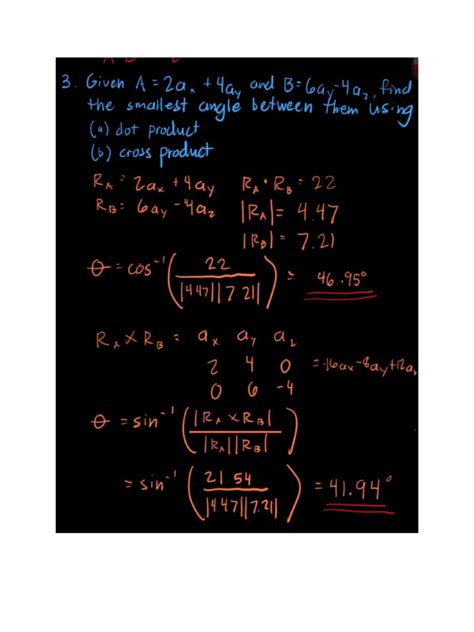 3. Given A = 2aₓ + 4aᵧ and B = 6aᵧ - 4a_z, find
the smallest angle between them using
(a) dot product
(b) cross product
R_A = 2aₓ + 4aᵧ R_A · R_B = 22
R_B = 6aᵧ - 4a_z |R_A| = 4.47
|R_B| = 7.21
θ = cos⁻¹ ( 22 / |4.47||7.21| ) = 46.95°
R_A × R_B = aₓ aᵧ a_z
2 4 0 = -16aₓ - 8aᵧ + 12a_z
0 6 -4
θ = sin⁻¹ ( |R_A × R_B| / |R_A||R_B| )
= sin⁻¹ ( 21.54 / |4.47||7.21| ) = 41.94°